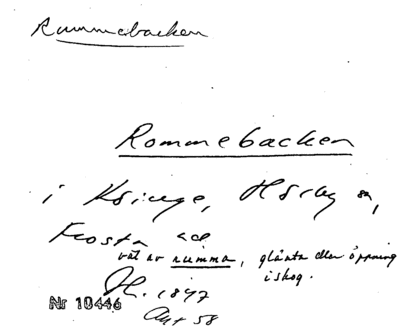 Rummebacken
Rommebacken
i Ksinge, Hörby sn,
Frosta hd
väl av rumma, glänta eller öppning
i skog.
1897
Nr 10446
Akt 58